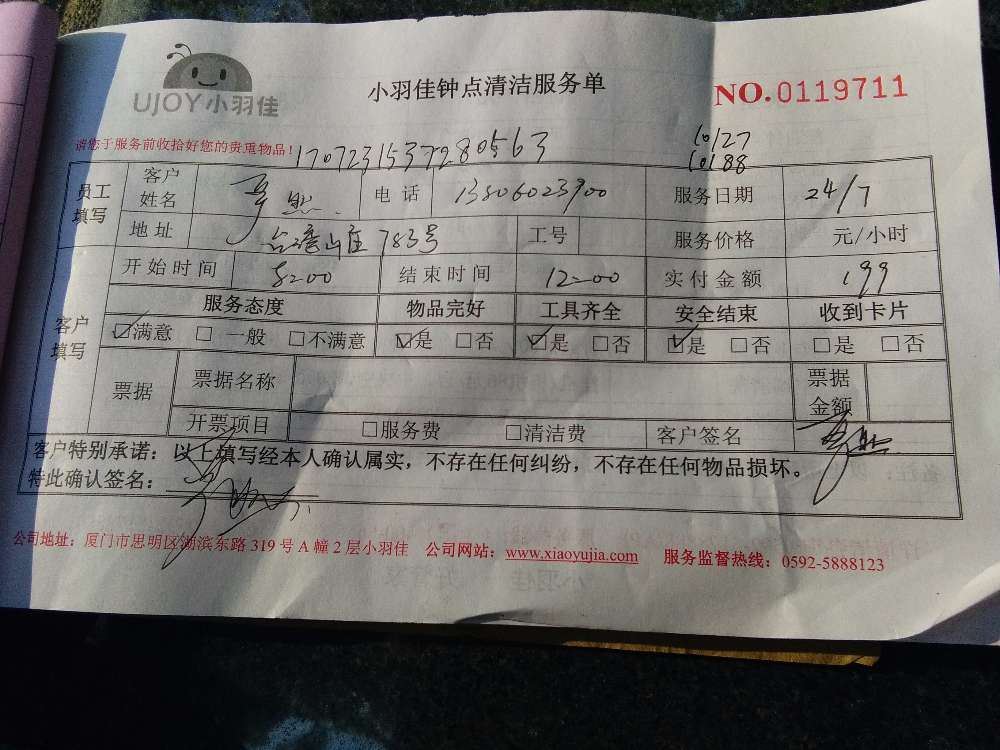 UJOY小羽佳
小羽佳钟点清洁服务单
NO.0119711
请您于服务前收拾好您的贵重物品!
10127
10188
员工填写 客户姓名 电话 13806023900 服务日期 24/7
地址 783号 工号 服务价格 元/小时
开始时间 8:00 结束时间 12:00 实付金额 199
客户填写 服务态度 物品完好 工具齐全 安全结束 收到卡片
☑满意 □一般 □不满意 ☑是 □否 ☑是 □否 ☑是 □否 □是 □否
票据 票据名称 票据金额
开票项目 □服务费 □清洁费 客户签名
客户特别承诺：以上填写经本人确认属实，不存在任何纠纷，不存在任何物品损坏。
特此确认签名：
公司地址：厦门市思明区湖滨东路 319 号 A 幢 2 层小羽佳 公司网站：www.xiaoyujia.com 服务监督热线：0592-5888123